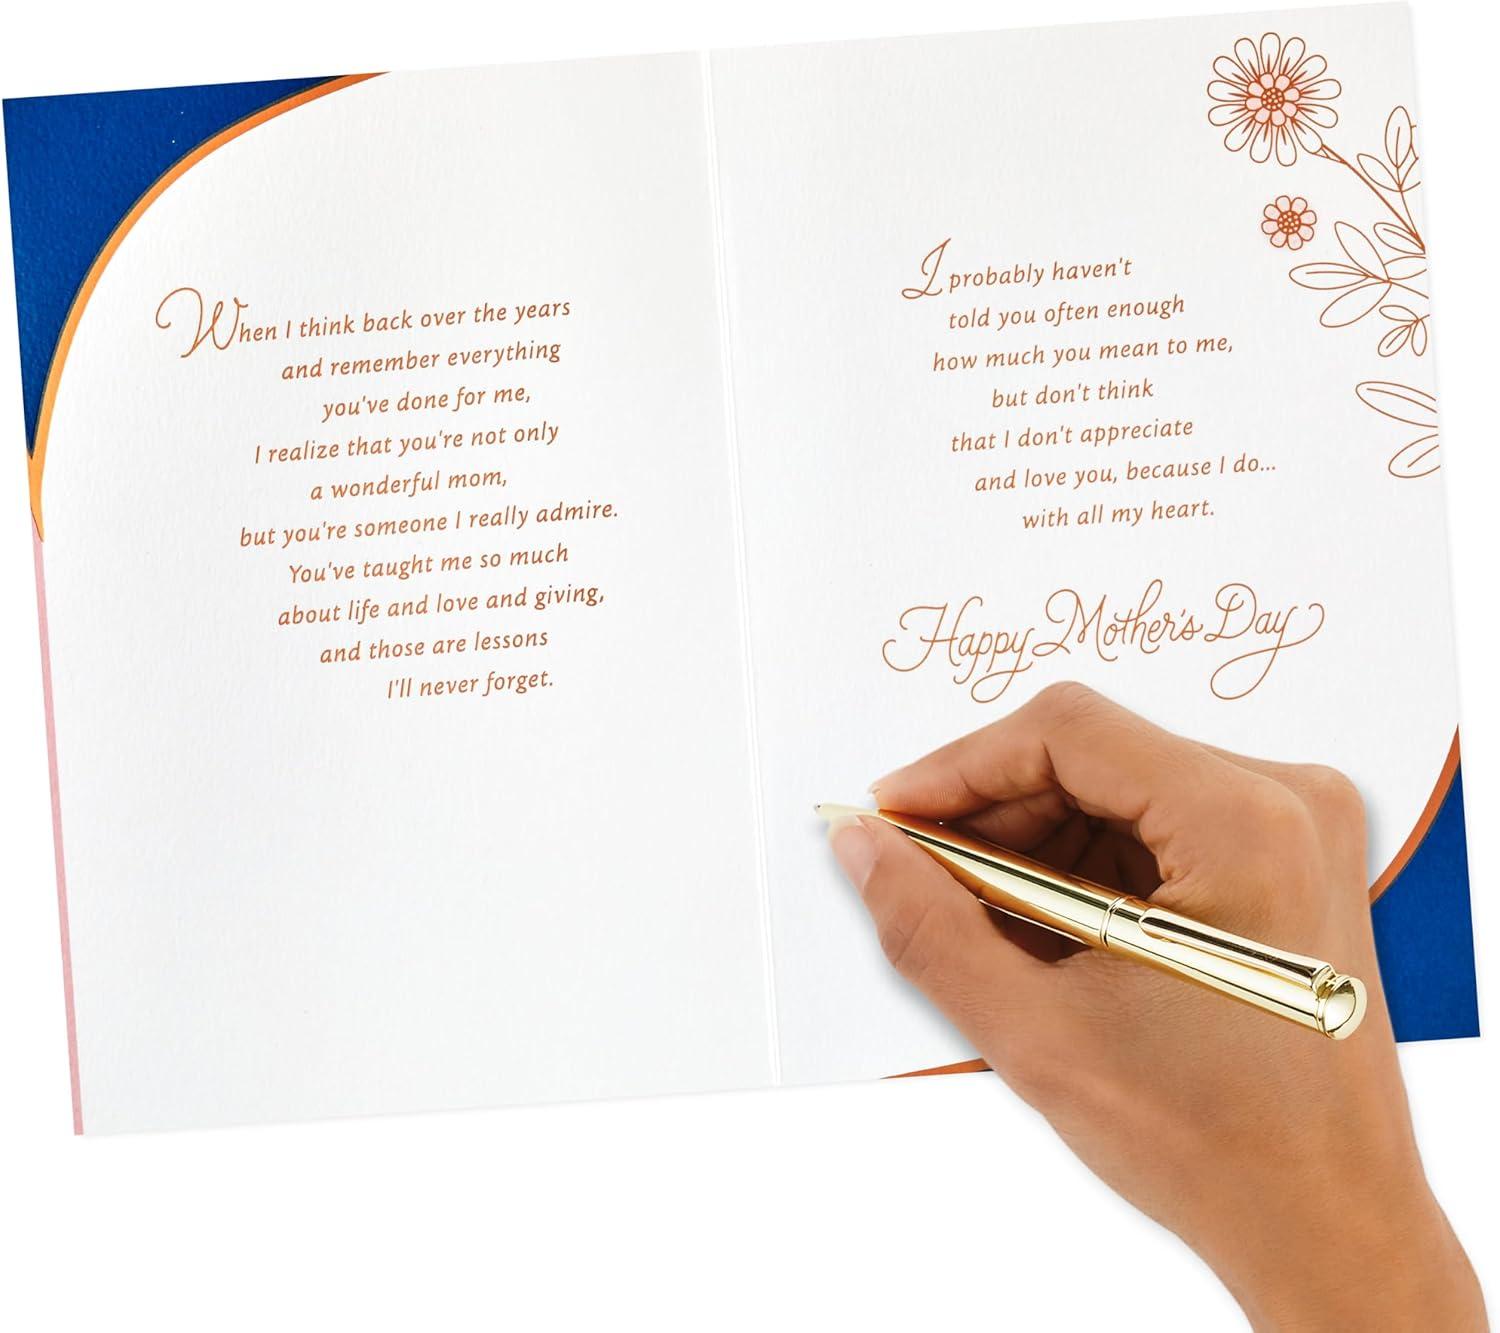 When I think back over the years
and remember everything
you've done for me,
I realize that you're not only
a wonderful mom,
but you're someone I really admire.
You've taught me so much
about life and love and giving,
and those are lessons
I'll never forget.
I probably haven't
told you often enough
how much you mean to me,
but don't think
that I don't appreciate
and love you, because I do...
with all my heart.
Happy Mother's Day